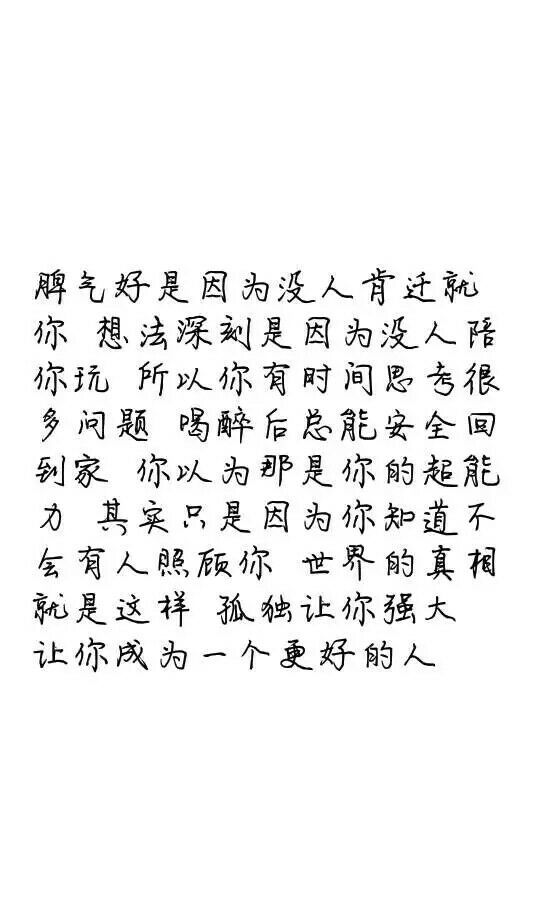 脾气好是因为没人肯迁就
你 想法深刻是因为没人陪
你玩 所以你有时间思考很
多问题 喝醉后总能安全回
到家 你以为那是你的超能
力 其实只是因为你知道不
会有人照顾你 世界的真相
就是这样 孤独让你强大
让你成为一个更好的人